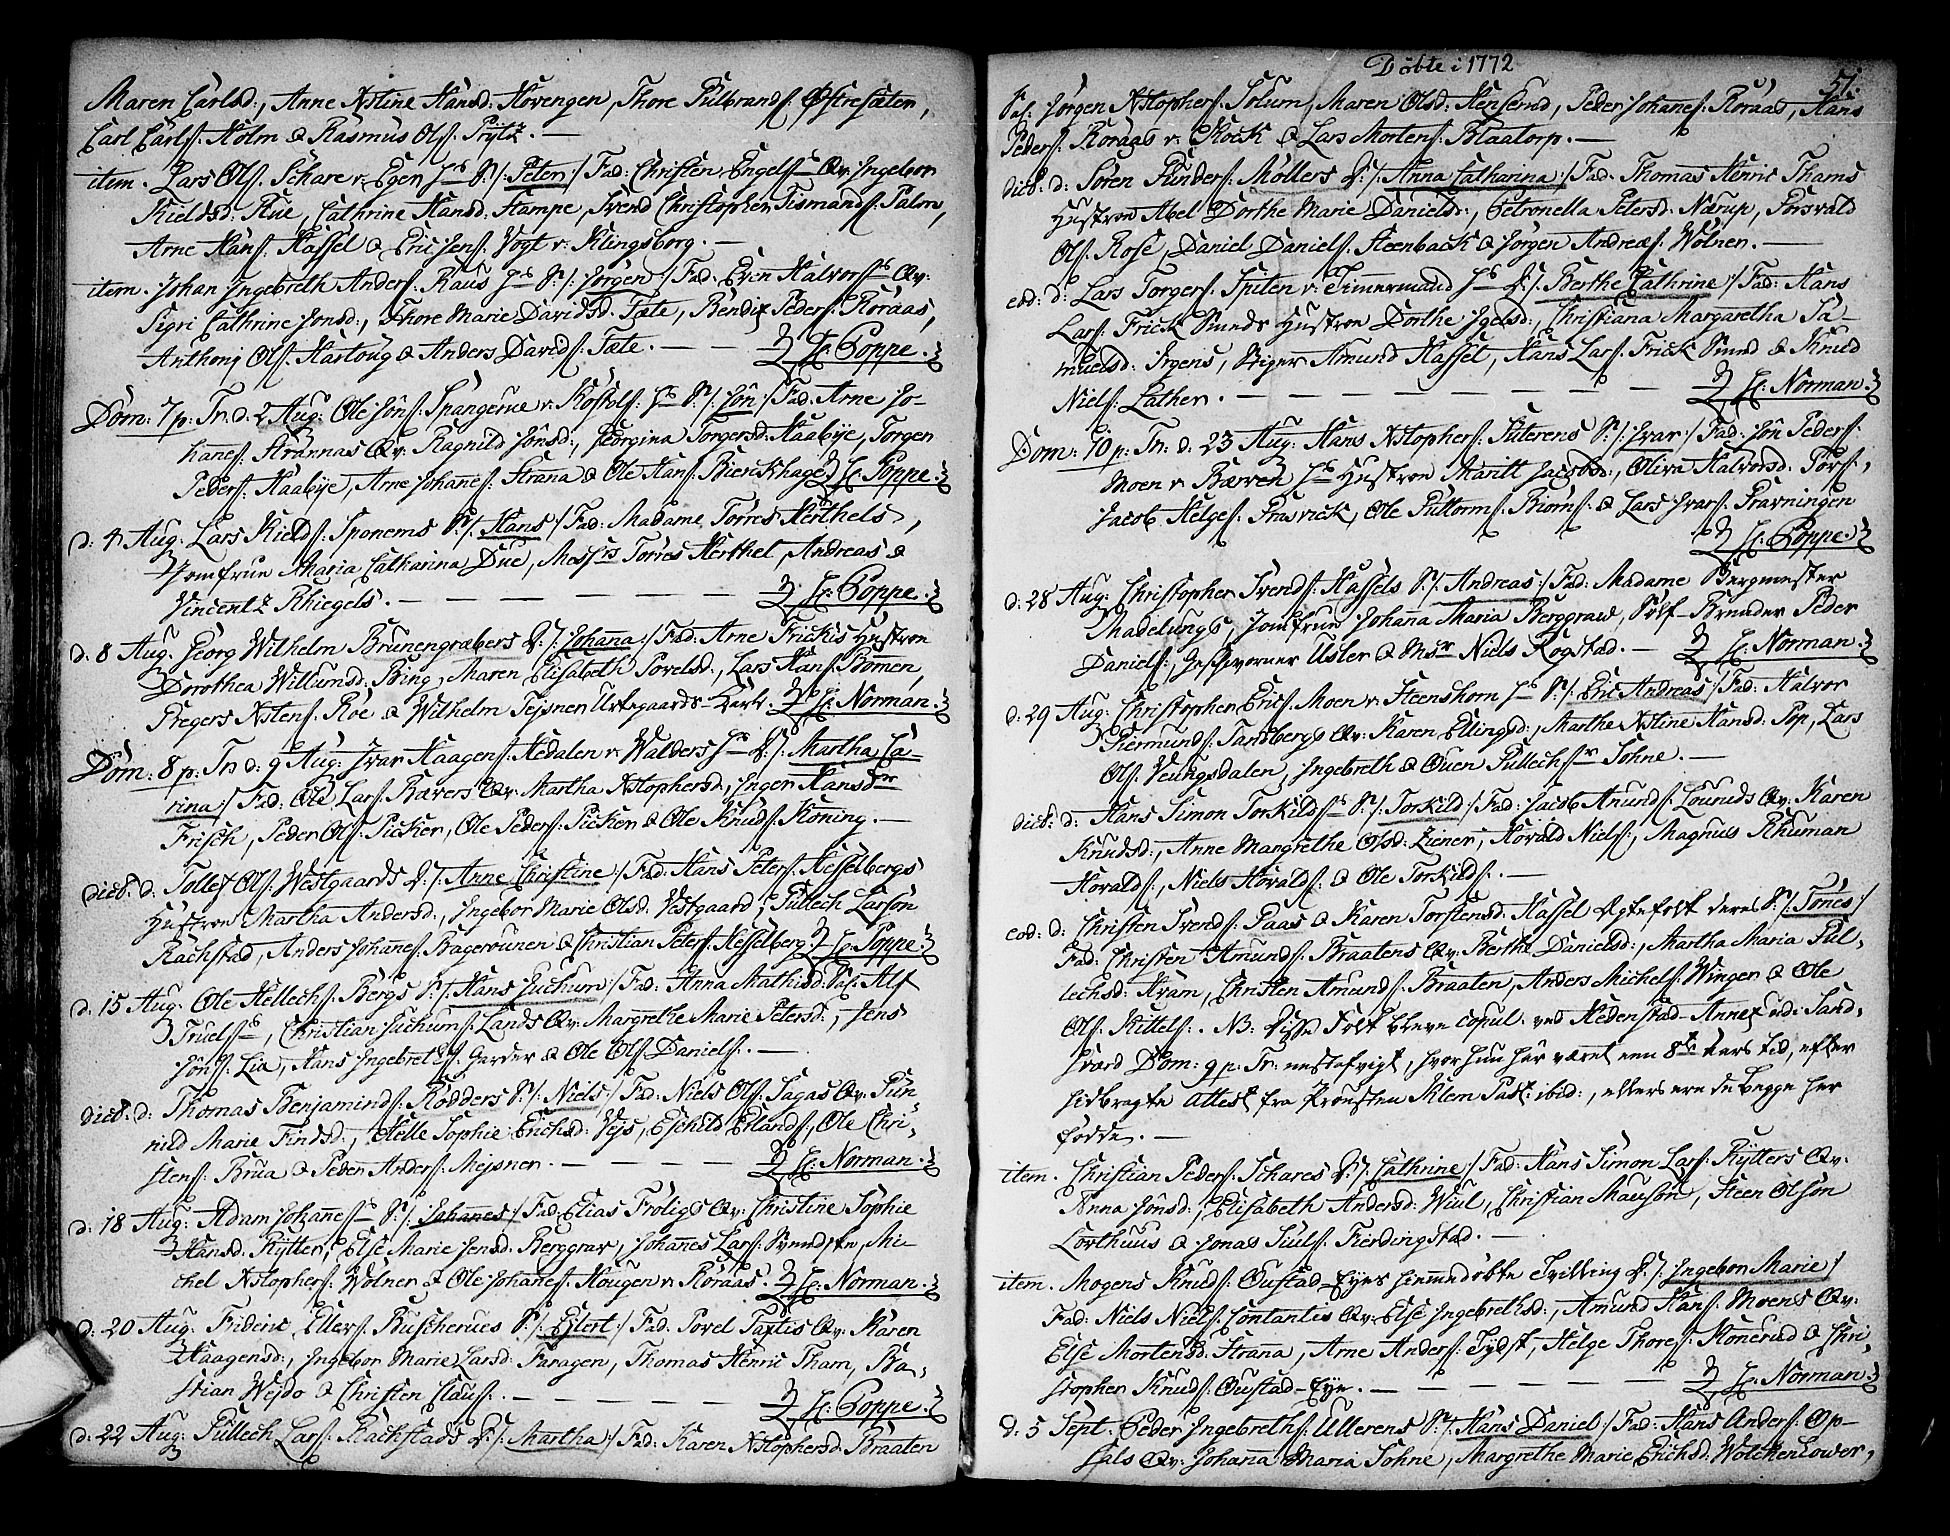 Maren Carlsd:, Anne Xstine Hansd: Hovengen, Thore Gulbrands: Østresæter,
Carl Carls: Holm & Rasmus Ols: Prytz. —
item. Lars Ols: Schare v: Eger S./: Peter :/ Fad: Christen Engels: Qv: Ingebor
Kieldsd: Rue, Cathrine Hansd: Stampe, Svend Christopher Tismands: Palm,
Arne Hans: Hassel & Eric Jens: Vogt v: Klingsborg. —
item. Johan Ingebreth Anders: Raus S./: Jørgen :/ Fad: Even Halvors: Qv:
Sigri Cathrine Jonsd:, Thore Marie Davidsd: Tæte, Bendix Peders: Roraas,
Anthonj Ols: Hartoug & Anders Davids: Tæte. — — H: Poppe.
Dom: 7 p: Tr: d: 2 Aug: Ole Jøns: Spangerue v: Kostols: S./: Jøn :/ Fad: Arne Jo-
hanes: Strannas Qv: Ragnild Jønsd:, Georgina Torgersd: Haabye, Torgen
Peders: Haabye, Arne Johanes: Stranna & Ole Hans: Bierkhage H: Poppe.
d: 4 Aug: Lars Kields: Sponems S./: Hans :/ Fad: Madame Torres Herthels,
Jomfrue Maria Catharina Due, Messrs Torres Herthel, Andreas &
Vincentz Rhiegels. — — — — H: Poppe.
d. 8 Aug. Georg Wilhelm Brunengræbers D./: Johanna :/ Fad: Arne Frickis Hustroe
Dorothea Willumsd: Bing, Maren Elisabeth Povelsd:, Lars Hans: Bomen,
Gregers Xstens: Roe & Wilhelm Tejsner Urtegaards-Karl. H: Norman.
Dom: 8 p: Tr: d: 9 Aug: Ivar Haagens: Hedalen v: Walders D./: Martha Ca-
rina :/ Fad: Ole Lars: Bævers Qv: Martha Xstophersd:, Inger Hansdr
Frisch, Peder Ols: Picker, Ole Peders: Picker & Ole Knuds: Koning. —
dict. d: Tollef Ols: Westgaards D./: Anne Christine :/ Fad: Hans Peters: Hesselbergs
Hustroe Martha Andersd:, Ingebor Marie Olsd: Vestgaard, Gullech Larson
Rachstad, Anders Johanes: Bagerounen & Christian Peters: Hesselberg H: Poppe.
d: 15 Aug: Ole Hellechs: Bergs S./: Hans Juchum :/ Fad: Anna Mathisd: Pas: Alf
Truels:, Christian Juchums: Lands Qv: Margrethe Marie Petersd:, Jens
Jøns: Lia, Hans Ingebreths: Garder & Ole Ols: Daniels. —
dict: d: Thomas Benjamins: Rødders S./: Niels :/ Fad: Niels Ols: Sagas Qv: Gun-
nild Marie Findsd:, Helle Sophie Erichsd: Vejs, Eschild Erlands:, Ole Chri-
stens: Brua & Peder Anders: Mejsner. — — — H: Norman.
d: 18 Aug: Adam Johanes: S./: Johannes :/ Fad: Elias Froligs Qv: Christine Sophie
Hansd: Rytter, Else Marie Jensd: Berggrav, Johanes Lars: Svendste, Mi-
chel Xstophers: Wölner & Ole Johanes: Hougen v: Roraas. H: Norman.
d: 20 Aug: Frideric Ellers: Buscherues S./: Ejlert :/ Fad: Povel Taxtis Qv: Karen
Haagensd:, Ingebor Marie Larsd: Faragen, Thomas Henric Tham, Ba-
stian Wejdo & Christen Claus:. — — — H: Poppe.
d: 22 Aug: Gullech Lars: Rachstads D./: Martha :/ Fad: Karen Xstophersd: Braaten
Døbte i 1772
51.
Pas: Jørgen Xstophers: Solum, Maren Olsd: Hensernd, Peder Johanes: Roraas, Hans
Peders: Roraas v: Kock & Lars Mortens: Blaatorp. —
dict: d: Søren Gunders: Møllers D./: Anna Catharina :/ Fad: Thomas Henric Thams
Hustroe Abel Dorthe Marie Danielsd:, Petronella Petersd: Nærup, Porsvald
Ols: Rose, Daniel Daniels: Steenback & Jørgen Andreas: Wölner. —
eod: d: Lars Torgers: Spiten v: Timermand D./: Berthe Cathrine :/ Fad: Hans
Lars: Frick Smeds Hustroe Dorthe Igelsd:, Christiana Margaretha Sa-
muelsd: Irgens, Stiger Amund Hassel, Hans Lars: Frick Smed & Knud
Niels: Lather. — — — — — H: Norman.
Dom: 10 p: Tr: d: 23 Aug: Hans Xstophers: Suterens S./: Ivar :/ Fad: Jøn Peders:
Moen v: Bærren Hustroe Maritt Jacobsd:, Oliva Halvorsd: Pors:,
Jacob Helges: Prasvick, Ole Guttorms: Biørns: & Lars Ivars: Pravningen
H: Poppe.
d: 28 Aug: Christopher Svends: Hassels S./: Andreas :/ Fad: Madame Bergmester
Madelungs, Jomfrue Johanna Maria Berggraw, Sølf-Brender Peder
Daniels:, Geschworner Usler & Msr Niels Kogstad. — H: Norman.
d: 29 Aug: Christopher Erics: Moen v: Steenshorn S./: Eric Andreas :/ Fad: Halvor
Giermunds: Sandbergs Qv: Karen Ellingsd:, Martha Xstine Hansd: Pop, Lars
Ols: Veungsdalen, Ingebreth & Ouen Gullechsr Sohne. —
dict: d: Hans Simon Torkilds: S./: Torkild :/ Fad: Jacob Anunds: Louruds Qv: Karen
Knudsd:, Anne Margrethe Olsd: Ziener, Horald Niels:, Magnus Rhuman
Horalds:, Niels Horalds: & Ole Torkilds:. —
eod: d: Christen Svends: Paas & Karen Torstensd: Hassel Ægtefolk deres S./: Tønes :/
Fad: Christen Amunds: Braatens Qv: Berthe Danielsd:, Martha Maria Gul-
lechsd: Kram, Christen Amunds: Braaten, Anders Michels: Winger & Ole
Ols: Kittels:. NB: Disse Folk bleve copul: ved Hedenstad-Annex ud: Sand-
sværd Dom: 9 p: Tr: nestafvigt, hvor hun har været een 8te dags tid, efter
hidbragte Attest fra Provsten Klem Past: ibid:, ellers ere de begge her
fødde. —
item. Christian Peders: Schares D./: Cathrine :/ Fad: Hans Simon Lars: Rytters Qv:
Anna Jønsd:, Elisabeth Andersd: Wiul, Christian Mauson, Steen Olson
Lorthuus & Jonas Siuls: Fierdingstad. —
item. Mogens Knuds: Oustad-Eyes hiemmedøbte Tvilling D./: Ingebor Marie :/
Fad: Niels Niels: Contantis Qv: Else Ingebrethsd:, Amund Hans: Moens Qv:
Else Mortensd: Stranna, Arne Anders: Tydst, Helge Thores: Komerud & Chri-
stopher Knuds: Oustad-Eye. — — — — H: Norman.
d: 5 Sept: Peder Ingebreths: Ullerens S./: Hans Daniel :/ Fad: Hans Anders: Op-
sals Qv: Johanna Maria Sohne, Margrethe Marie Erichsd: Wolckenlower,